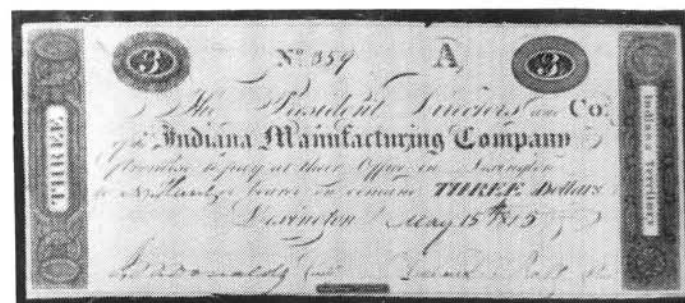 3 Nº 359 A 3
THREE
The President Directors and Co.
of the Indiana Manufacturing Company
promise to pay at their Office in Lexington
to or bearer on demand THREE Dollars
Lexington May 15th 1815
Indiana Territory